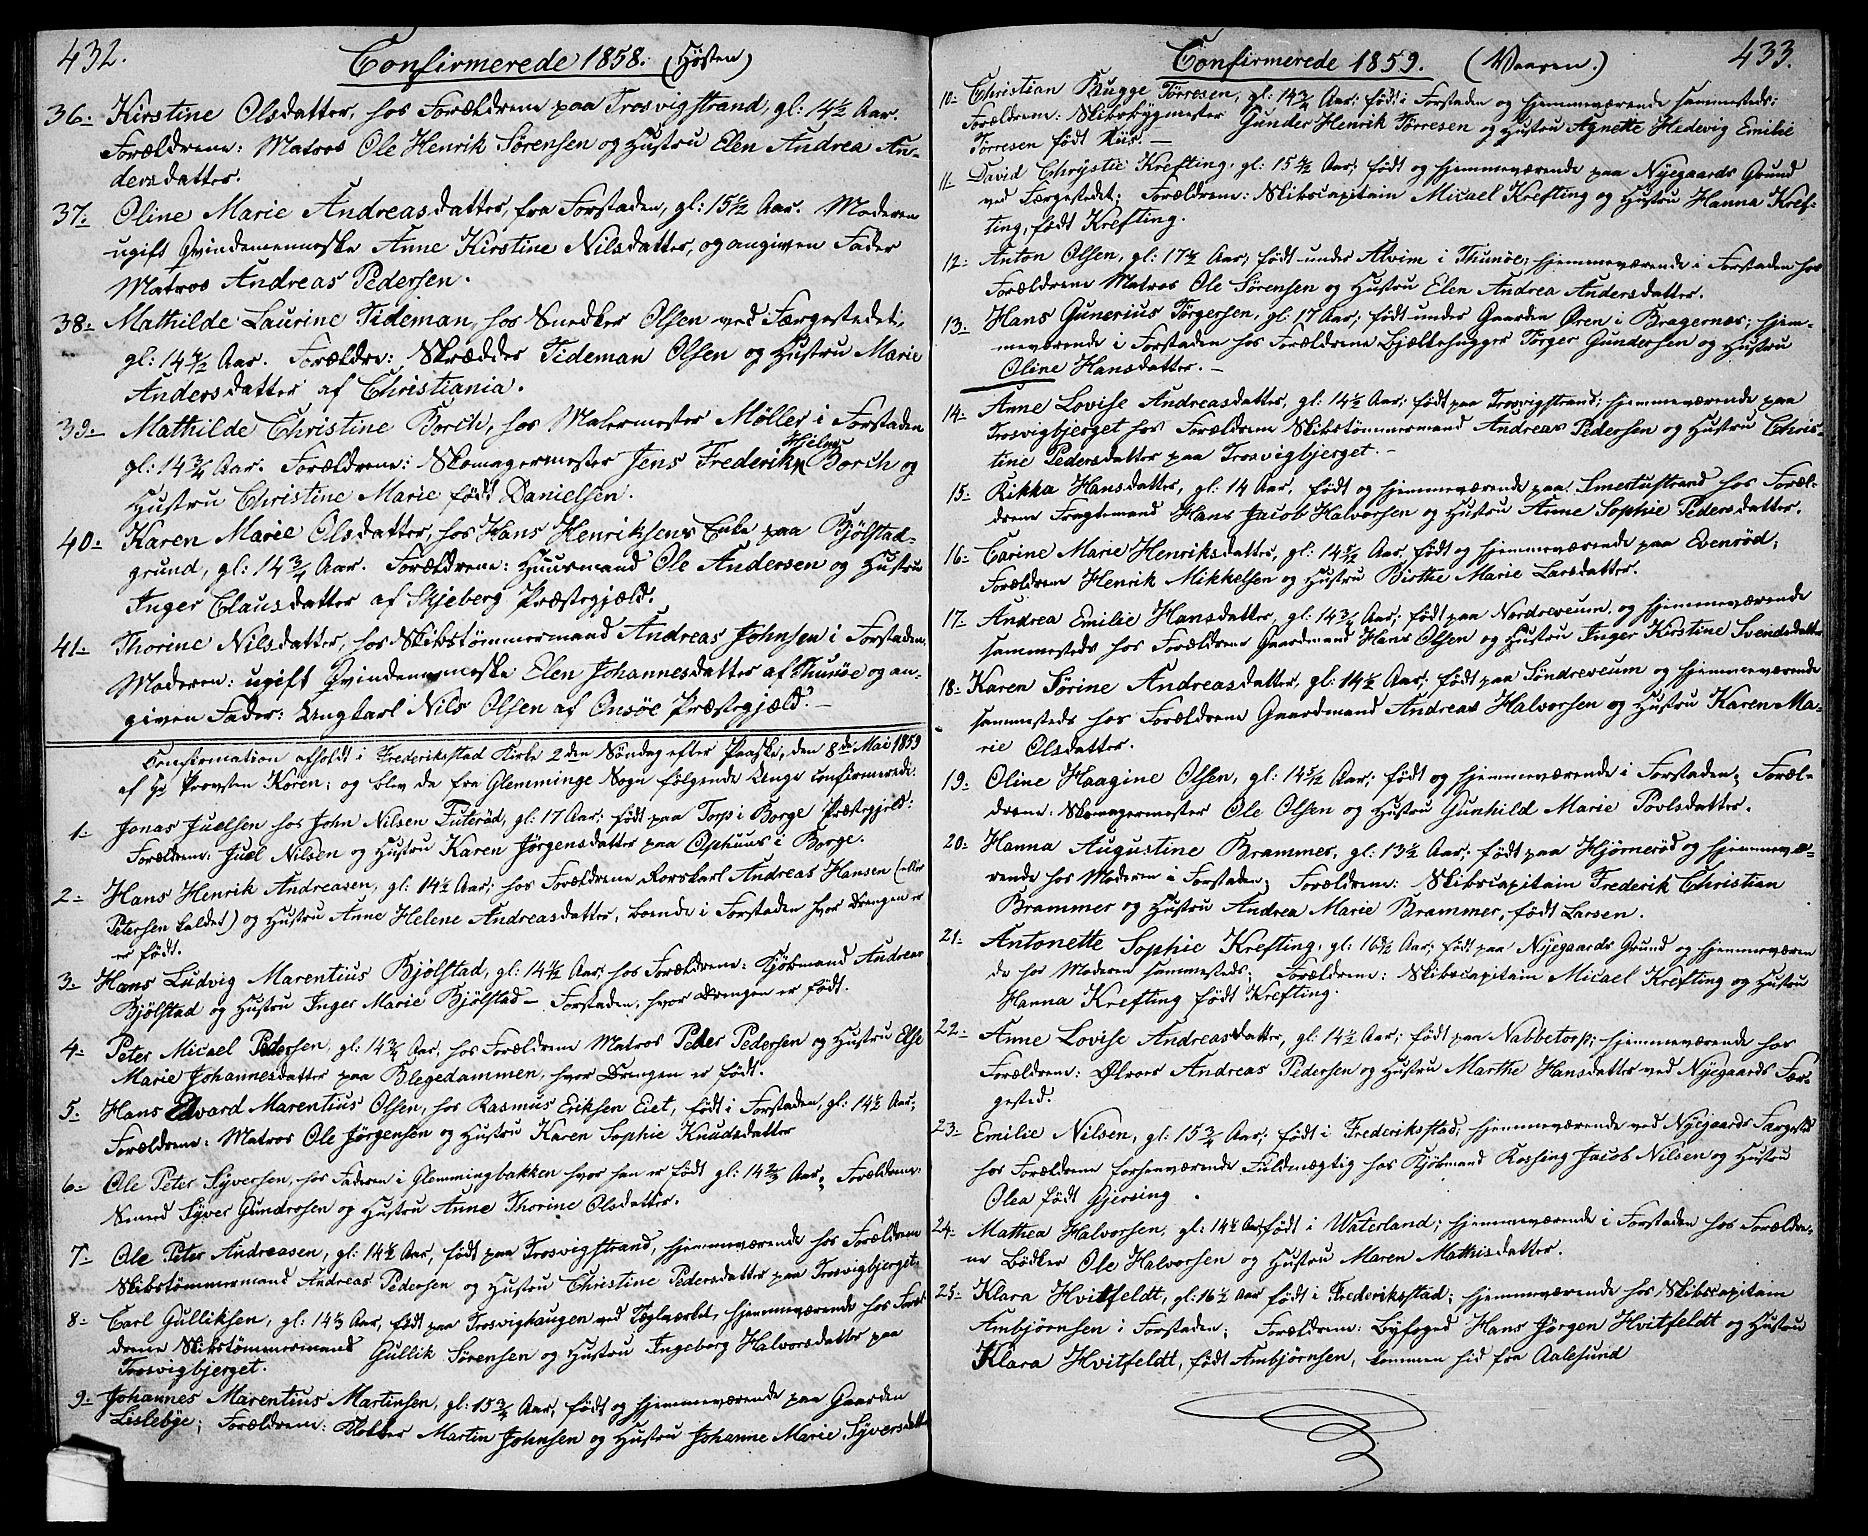 432.
Confirmerede 1858. (Høsten)
36. Kirstine Olsdatter, hos Forældrene paa Trosvigstrand, gl: 14½ Aar.
Forældrene: Matros Ole Henrik Sørensen og Hustru Elen Andrea An-
dersdatter.
37. Oline Marie Andreasdatter, fra Forstaden, gl: 15½ Aar. Moderen
ugift Qvindemenneske Anne Kirstine Nilsdatter, og angiven Fader
Matros Andreas Pedersen.
38. Mathilde Laurine Tideman, hos Snedker Olsen ved Færgestedet,
gl: 14½ Aar. Forældre: Skrædder Tideman Olsen og Hustru Marie
Andersdatter af Christiania.
39. Mathilde Christine Borch, hos Malermester Møller i Forstaden
gl: 14¾ Aar. Forældrene: Skomagermester Jens Frederik Borch og
Hustru Christine Marie født Danielsen.
40. Karen Marie Olsdatter, hos Hans Henriksens Enke paa Bjølstad-
grund, gl: 14¾ Aar. Forældrene: Huusmand Ole Andersen og Hustru
Inger Clausdatter af Skjeberg Præstegjæld.
41. Thorine Nilsdatter, hos Skibstømmermand Andreas Johnsen i Forstaden.
Moderen: ugift Qvindemenneske Elen Johannesdatter af Thunøe og an-
given Fader: Ungkarl Nils Olsen af Onsøe Præstegjæld. —
Confirmation afholdt i Frederikstad Kirke 2den Søndag efter Paaske, den 8de Mai 1859
af Hr Provsten Koren; og blev da fra Glemminge Sogn følgende Unge confirmerede:
1. Jonas Juelsen hos John Nilsen Futerød, gl: 17 Aar; født paa Torp i Borge Præstegjeld:
Forældrene: Juel Nilsen og Hustru Karen Jørgensdatter paa Ophuus i Borge.
2. Hans Henrik Andreasen, gl: 14½ Aar; hos Forældrene Rorskarl Andreas Hansen (eller
Petersen kaldet) og Hustru Anne Helene Andreasdatter, boende i Forstaden hvor Drengen er
er født.
3. Hans Ludvig Marentius Bjølstad, gl: 14½ Aar; hos Forældrene: Kjøbmand Andreas
Bjølstad og Hustru Inger Marie Bjølstad — Forstaden, hvor Drengen er født.
4. Peter Micael Pedersen, gl: 14¾ Aar, hos Forældrene Matros Peder Pedersen og Hustru Else
Marie Johannesdatter paa Blegedammen, hvor Drengen er født.
5. Hans Edvard Marentius Olsen, hos Rasmus Eriksen Eiet, født i Forstaden, gl: 14½ Aar;
Forældrene: Matros Ole Jørgensen og Hustru Karen Sophie Knudsdatter
6. Ole Peter Syversen, hos Faderen i Glemmingbakken hvor han er født gl: 14 Aar; Forældrene:
Smed Syver Gundrosen og Hustru Anne Thorine Olsdatter.
7. Ole Peter Andreasen, gl: 14½ Aar, født paa Trosvigstrand, hjemmeværende hos Forældrene
Skibstømmermand Andreas Pedersen og Hustru Christine Pedersdatter paa Trosvigbjerget.
8. Carl Gulliksen, gl: 14¾ Aar, født paa Trosvighaugen ved Teglværket, hjemmeværende hos Foræl-
drene Skibstømmermand Gullik Sørensen og Hustru Ingeborg Halvorsdatter paa
Trosvigbjerget.
9. Johannes Marentius Martinsen, gl: 15¾ Aar, født og hjemmeværende paa Gaarden
Lislebye; Forældrene: Martin Johnsen og Hustru Johanne Marie Syversdatter
433.
Confirmerede 1859. (Vaaren.)
10. Christian Bugge Tørresen, gl: 14¾ Aar; født i Forstaden og hjemmeværende sammesteds;
Forældrene: Skibsbygmester Gunder Henrik Tørresen og Hustru Agnette Hedevig Emilie
Tørresen født Riis. —
11. David Chrystie Krefting, gl: 15½ Aar; født og hjemmeværende paa Nyegaards Grund
ved Færgestedet; Forældrene: Skibscapitain Micael Krefting og Hustru Hanna Kref-
ting, født Krefting.
12. Anton Olsen, gl: 17½ Aar; født under Alvim i Thunøe; hjemmeværende i Forstaden hos
Forældrene Matros Ole Sørensen og Hustru Elen Andrea Andersdatter.
13. Hans Gunerius Tørgersen, gl: 17 Aar; født under Gaarden Øren i Bragernæs; hjem-
meværende i Forstaden hos Forældrene Bjelkehugger Tørger Gundersen og Hustru
Oline Hansdatter. —
14. Anne Lovise Andreasdatter, gl: 14½ Aar; født paa Trosvigstrand; hjemmeværende paa
Trosvigbjerget hos Forældrene Skibstømmermand Andreas Pedersen og Hustru Chris-
tine Pedersdatter paa Trosvigbjerget. —
15. Rikka Hansdatter, gl: 14 Aar, født og hjemmeværende paa Smertustrand hos Foræl-
drene Fragtemand Hans Jacob Halvorsen og Hustru Anne Sophie Pedersdatter.
16. Carine Marie Henriksdatter, gl: 14½ Aar, født og hjemmeværende paa Evenrød;
Forældrene Henrik Mikkelsen og Hustru Birthe Marie Larsdatter.
17. Andrea Emilie Hansdatter, gl: 14¾ Aar; født paa Nordreveum, og hjemmeværende
sammesteds hos Forældrene Gaardmand Hans Olsen og Hustru Inger Kirstine Svendsdatter
18. Karen Sørine Andreasdatter, gl: 14½ Aar; født paa Søndreveum og hjemmeværende
sammesteds hos Forældrene Gaardmand Andreas Halvorsen og Hustru Karen Ma-
rie Olsdatter.
19. Oline Haagine Olsen, gl: 14½ Aar; født og hjemmeværende i Forstaden; Foræl-
drene: Skomagermester Ole Olsen og Hustru Gunhild Marie Povlsdatter.
20. Hanna Augustine Brammer, gl: 13½ Aar; født paa Hjørnerød og hjemmevæ-
rende hos Moderen i Forstaden; Forældrene: Skibscapitain Frederik Christian
Brammer og Hustru Andrea Marie Brammer, født Larsen.
21. Antonette Sophie Krefting, gl: 16½ Aar; født paa Nyegaards Grund og hjemmeværen
de hos Moderen sammesteds; Forældrene: Skibscapitain Micael Krefting og Hustru
Hanna Krefting født Krefting.
22. Anne Lovise Andreasdatter, gl: 14½ Aar; født paa Nabbetorp; hjemmeværende hos
Forældrene: Andreas Pedersen og Hustru Marthe Hansdatter ved Nyegaards Fær-
gested.
23. Emilie Nilsen, gl: 15¾ Aar; født i Frederikstad, hjemmeværende ved Nyegaards Færgested
hos Forældrene forhenværende Fuldmægtig hos Kjøbmand Rossing Jacob Nilsen og Hustru
Olea født Gjersing.
24. Mathea Halvorsen, gl: 14½ Aar, født i Waterland; hjemmeværende i Forstaden hos Forældre-
ne Bødker Ole Halvorsen og Hustru Maren Mathisdatter.
25. Klara Hvitfeldt, gl: 16½ Aar født i Frederikstad; hjemmeværende hos Skibscapitain
Ambjørnsen i Forstaden; Forældrene: Byfoged Hans Jørgen Hvitfeldt og Hustru
Klara Hvitfeldt, født Ambjørnsen, kommen hid fra Aalesund